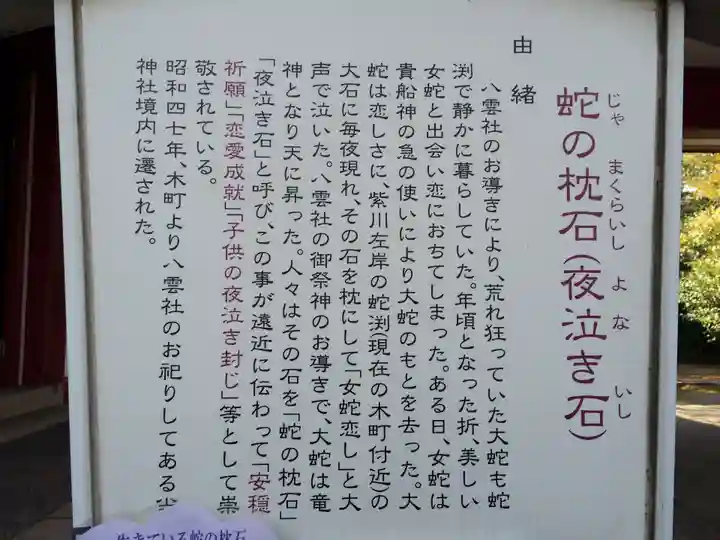 蛇の枕石(夜泣き石)
じゃ まくらいし よな いし
由緒
八雲社のお導きにより、荒れ狂っていた大蛇も蛇
渕で静かに暮らしていた。年頃となった折、美しい
女蛇と出会い恋におちてしまった。ある日、女蛇は
貴船神の急の使いにより大蛇のもとを去った。大
蛇は恋しさに、紫川左岸の蛇渕(現在の木町付近)の
大石に毎夜現れ、その石を枕にして「女蛇恋し」と大
声で泣いた。八雲社の御祭神のお導きで、大蛇は竜
神となり天に昇った。人々はその石を「蛇の枕石」
「夜泣き石」と呼び、この事が遠近に伝わって「安穏
祈願」「恋愛成就」「子供の夜泣き封じ」等として崇
敬されている。
昭和四七年、木町より八雲社のお祀りしてある
神社境内に遷された。
生きている蛇の枕石